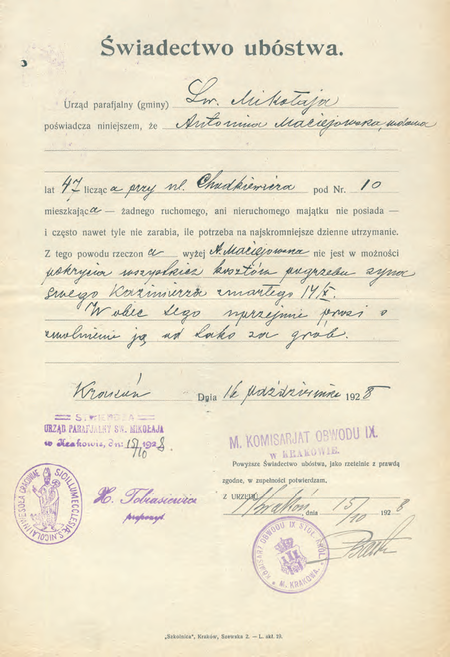 Świadectwo ubóstwa.
Urząd parafjalny (gminy) Św. Mikołaja
poświadcza niniejszem, że Antonina Maciejowska, wdowa
lat 47 licząca przy ul. Chodkiewicza pod Nr. 10
mieszkająca — żadnego ruchomego, ani nieruchomego majątku nie posiada —
i często nawet tyle nie zarabia, ile potrzeba na najskromniejsze dzienne utrzymanie.
Z tego powodu rzeczona wyżej A. Maciejowska nie jest w możności
pokrycia wszystkich kosztów pogrzebu syna
swego Kazimierza zmarłego 14/X.
W obec tego uprzejmie prosi o
zwolnienie ją od taks za grób.
Kraków Dnia 16 października 1928
URZĄD PARAFJALNY ŚW. MIKOŁAJA
w Krakowie, dn. 15/10 1928.
SIGILLUM ECCLESIAE S. NICOLAI
X. Tobiasiewicz
proboszcz
M. KOMISARJAT OBWODU IX.
W KRAKOWIE.
Powyższe Świadectwo ubóstwa, jako rzetelnie z prawdą
zgodne, w zupełności potwierdzam.
Z URZĘDU
Kraków dnia 15/10 1928
KOMISARZ OBWODU IX STOŁ. KRÓL. M. KRAKOWA
„Szkolnica", Kraków, Szewska 2. — L. skł. 10.